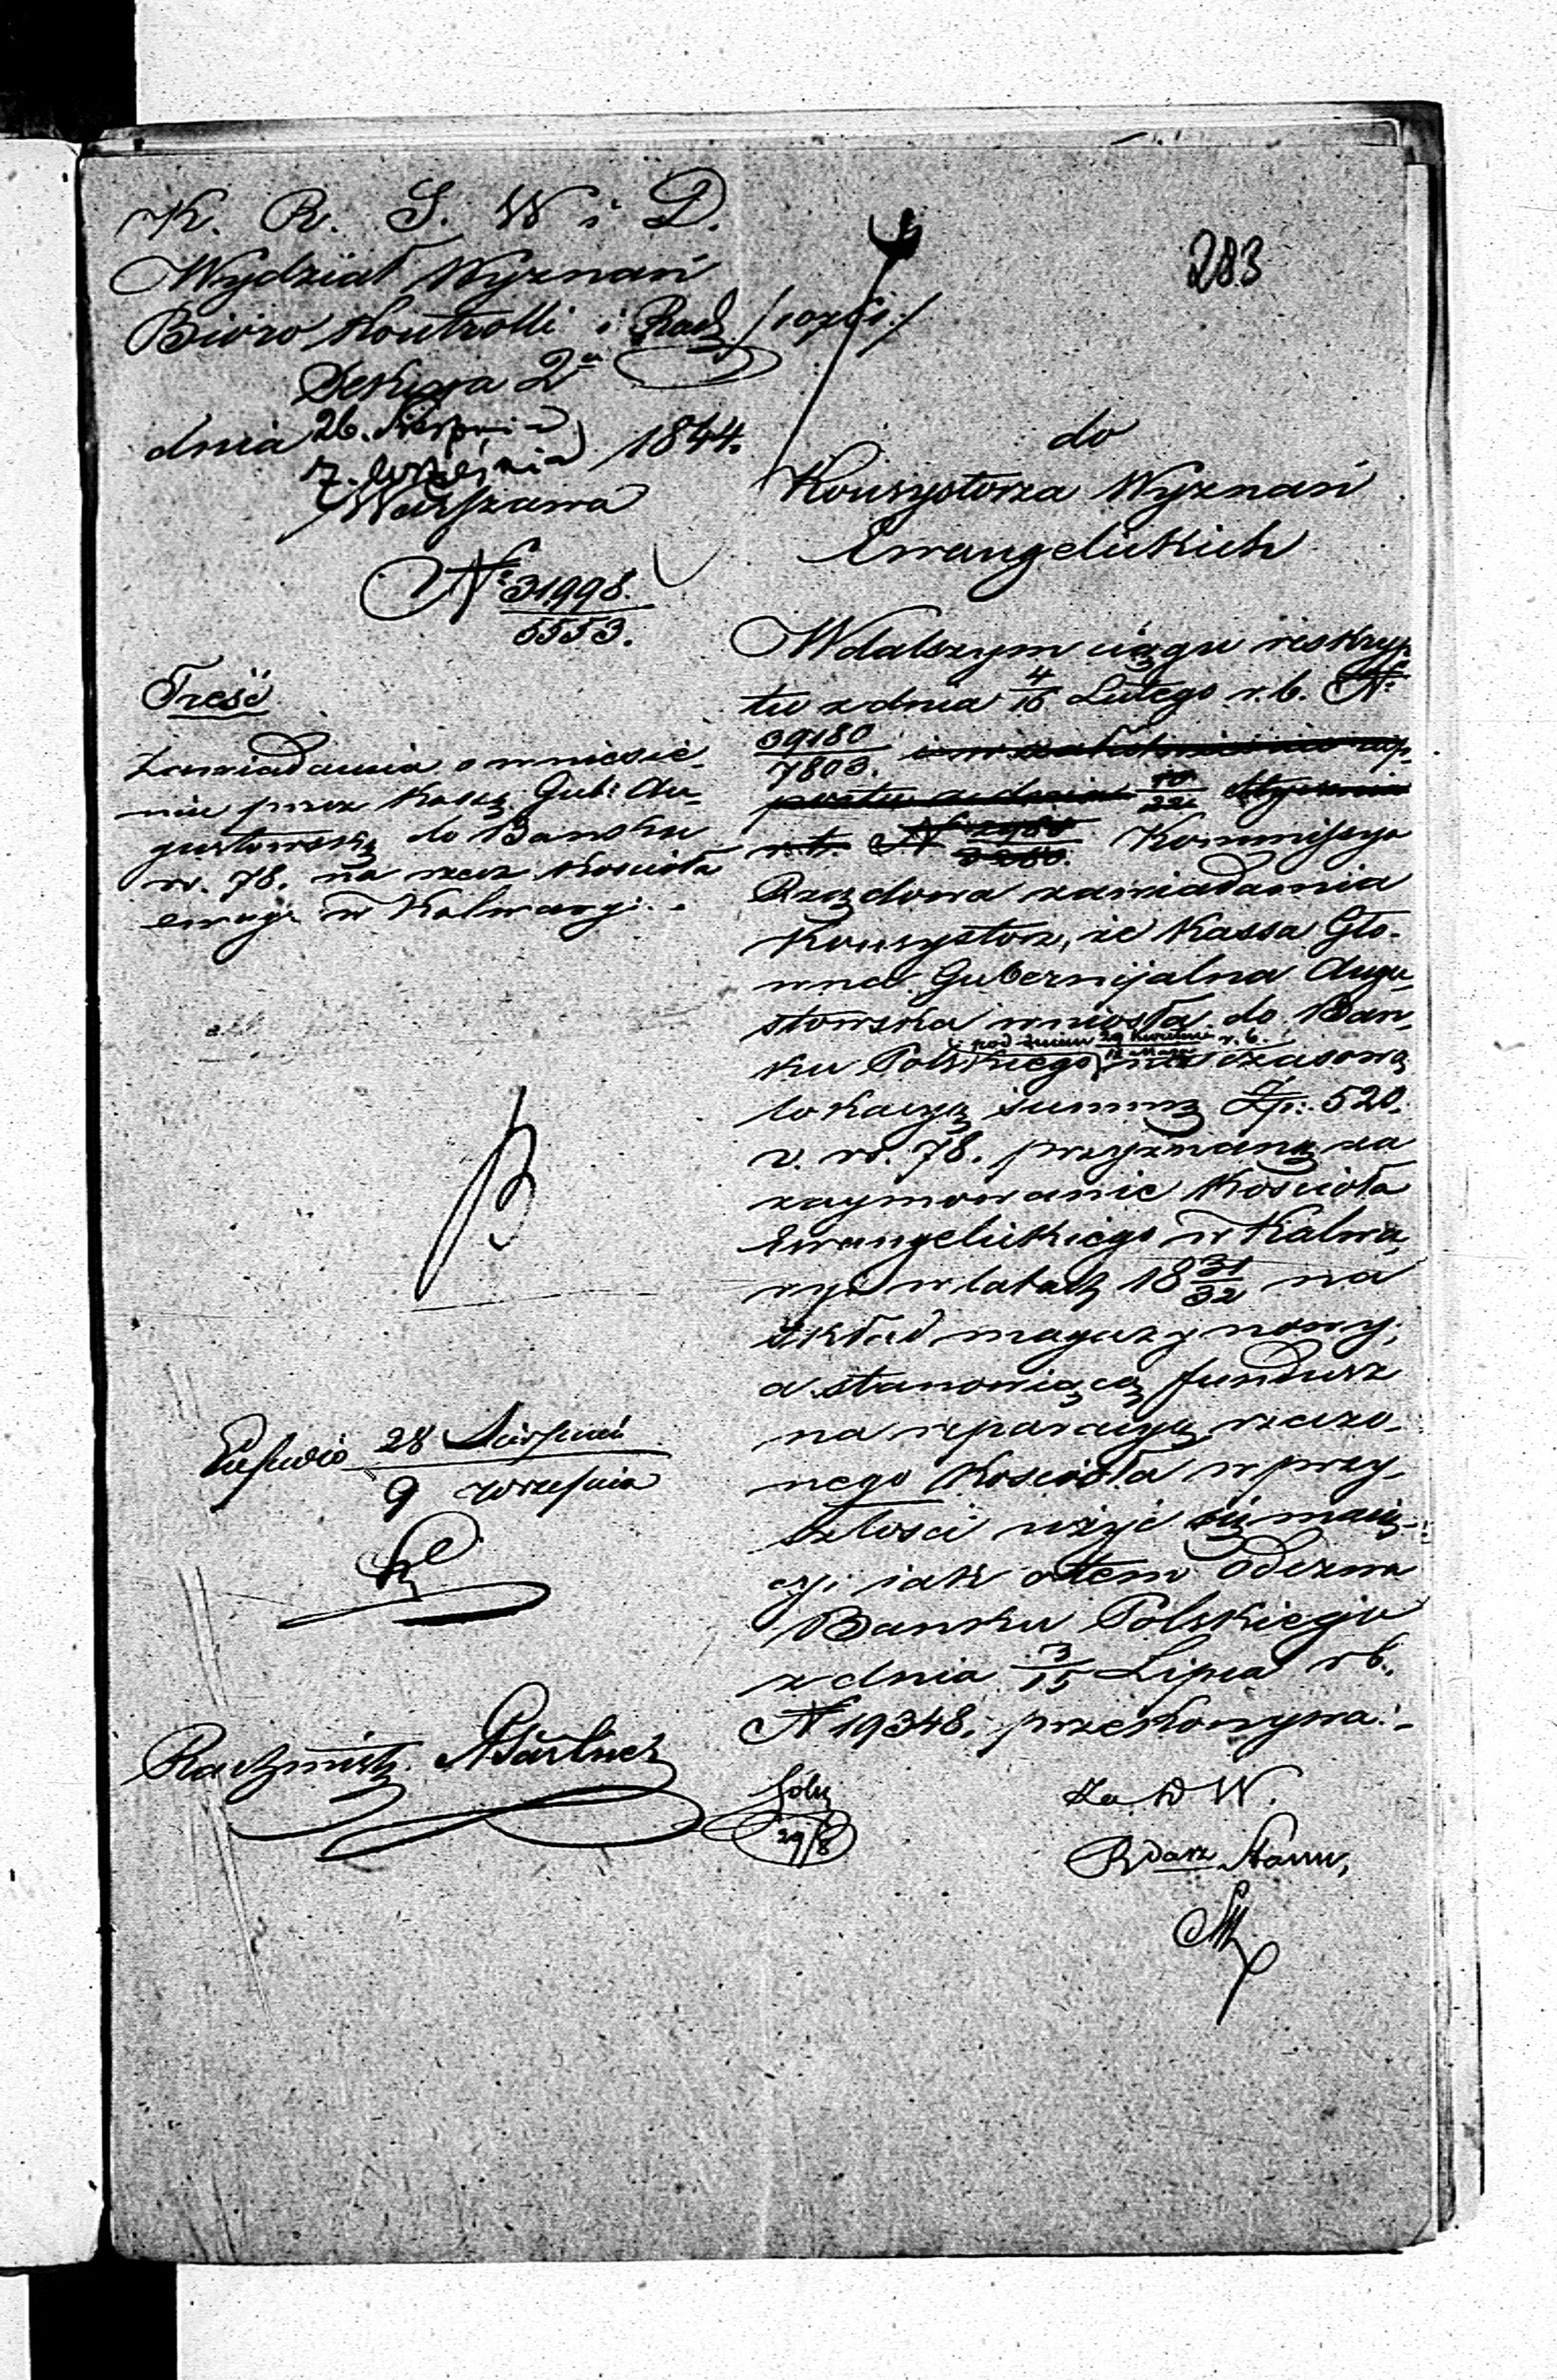 283
K. R. S. W i D.
Wydział Wyznań
Biuro Kontrolli i Rach
Sekcya 2a
dnia 26. Sierpnia / 7. Września 1844.
Warszawa
No 31998. / 5553.
Treść
Zawiadamia o wniesie-
niu przez Kassę Gub: Au-
gustowską do Banku
rs. 78. na rzecz Kościoła
ewang: w Kalwaryi. -
28 Sierpnia
9 Września
Rachmistrz
do
Konsystorza Wyznań
Ewangelickich
W dalszym ciągu reskryp-
tu z dnia 4/16 Lutego r. b. No
39180 / 7803.
10/22 Stycznia
r. b. N Kommissya
Rządowa zawiadamia
Konsystorz, że Kassa Głó-
wna Gubernijalna Augu-
stowska wniosła do Ban-
pod dniem 29 Kwietnia / 11 Maja r. b.
ku Polskiego na czasową
lokacyą summę Złp: 520.
v. rs. 78. przyznaną za
zaymowanie Kościoła
Ewangelickiego w Kalwa-
ryi w latach 18 31/32 na
skład magazynowy,
a stanowiącą fundusz
na reparacyą rzeczo-
nego Kościoła w przy-
szłości użyć się mają-
cy; iak o tem odezwa
Banku Polskiego
z dnia 3/15 Lipca r b.
N 19348. przekonywa. -
29/8
Za. D W.
R Stanu,